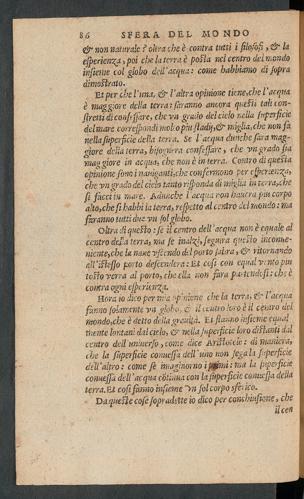 86 SFERA DEL MONDO
& non naturale è oltra che è contra tutti i filosofi, & la
esperienza, poi che la terra è posta nel centro del mondo
insieme col globo dell'acqua: come habbiamo di sopra
dimostrato.
Et per che l'una, & l'altra opinione tiene, che l'acqua
è maggiore della terra: saranno ancora questi tali con-
stretti di confessare, che vn grado del cielo nella superficie
del mare corrispondi molto piu stadij, & miglia, che non fa
nella superficie della terra. Se l'acqua dunche sara mag-
giore della terra, bisognera confessare, che vn grado sia
maggiore in acqua, che non è in terra. Contro di questa
opinione sono i nauiganti, che confermono per esperienza,
che vn grado del cielo tanto risponda di miglia in terra, che
si facci in mare. Adunche l'acqua non hauera piu corpo
alto, che si habbi la terra, respetto al centro del mondo: ma
faranno tutti due vn sol globo.
Oltra di questo: se il centro dell'acqua non è equale al
centro della terra, ma se inalzi, seguira questo inconue-
niente, che la naue vscendo del porto salira, & ritornando
all'istesso porto descendera: Et cosi con equal vento piu
tosto verra al porto, che ella non fara partendosi: che è
contra ogni esperienza.
Hora io dico per mia opinione che la terra, & l'acqua
fanno solamente vn globo, & il centro loro è il centro del
mondo, che è detto della grauità. Et stanno insieme equal
mente lontani dal cielo, & nella superficie loro distanti dal
centro dell'vniuerso, come dice Aristotele: di maniera,
che la superficie conuessa dell'uno non sega la superficie
dell'altro: come se imaginorno i primi: ma la superficie
conuessa dell'acqua cōtinua con la superficie conuessa della
terra. Et cosi fanno insieme vn sol corpo sferico.
Da queste cose sopradette io dico per conchiusione, che
il cen